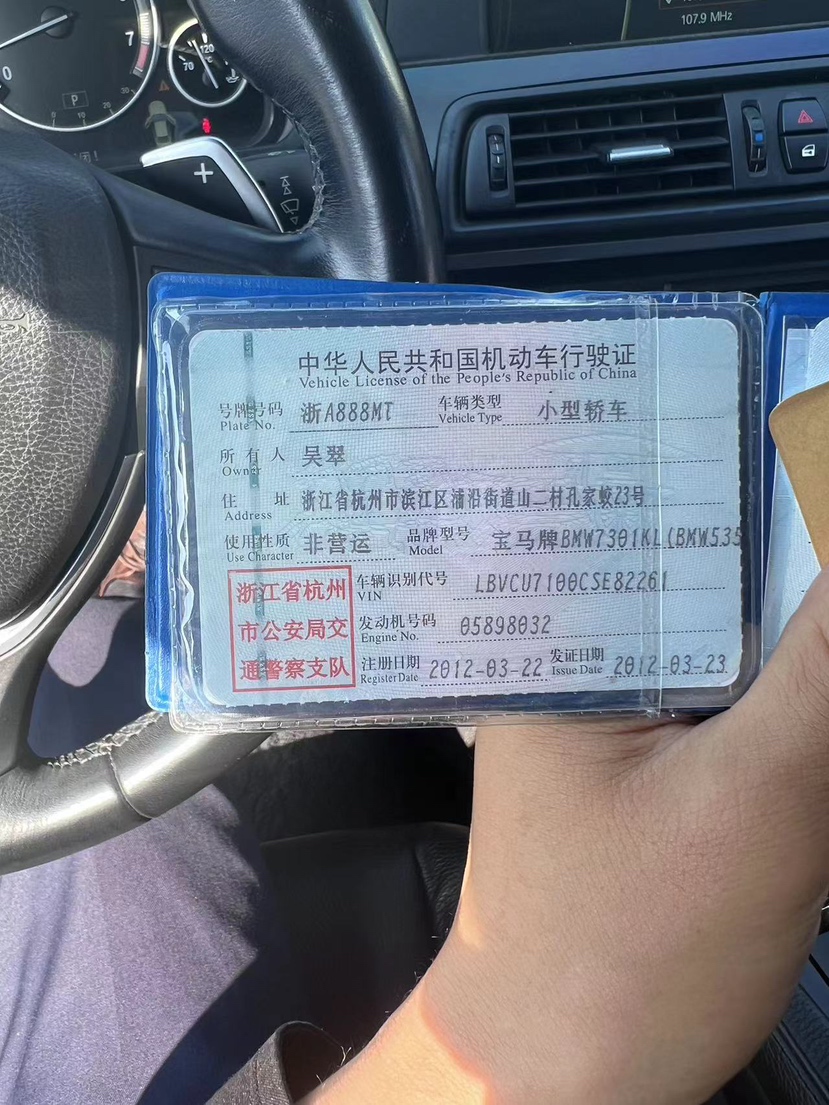 107.9 MHz
7
120
70
0
P
0 10 20 30
+
中华人民共和国机动车行驶证
Vehicle License of the People's Republic of China
号牌号码 浙A888MT 车辆类型 小型轿车
Plate No. Vehicle Type
所有人 吴翠
Owner
住址 浙江省杭州市滨江区浦沿街道山二村孔家蛟23号
Address
使用性质 非营运 品牌型号 宝马牌BMW7301KL(BMW535
Use Character Model
浙江省杭州 车辆识别代号 LBVCU7100CSE82261
VIN
市公安局交 发动机号码 05898032
Engine No.
通警察支队 注册日期 2012-03-22 发证日期 2012-03-23
Register Date Issue Date